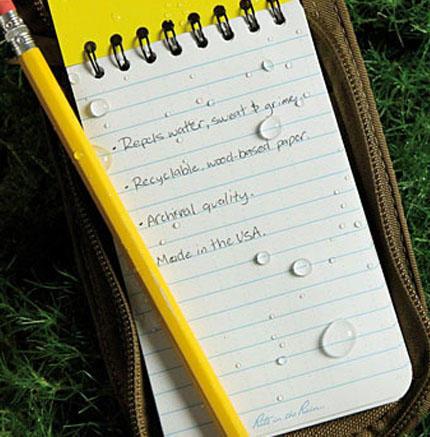 • Repels water, sweat & grime.
• Recyclable, wood-based paper.
• Archival quality.
Made in the USA.
Rite in the Rain